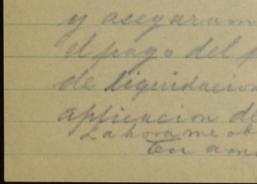 y aseguram
el pago del p
de liquidacion
aplicacion de
La hora me ob
En am